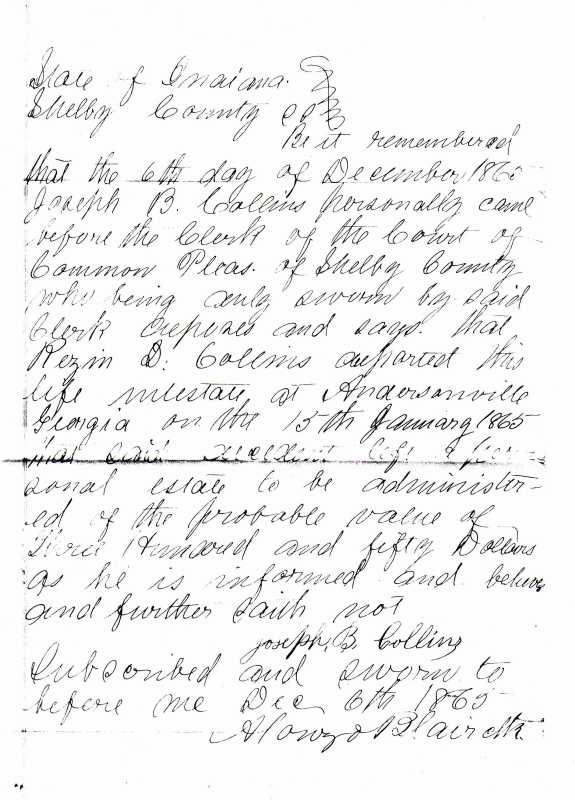 State of Indiana.
Shelby County SS
Be it remembered
that the 6th day of December 1865
Joseph B. Collins personally came
before the Clerk of the Court of
Common Pleas. of Shelby County
who being duly sworn by said
Clerk deposes and says. that
Rezin D. Collins departed this
life intestate at Andersonville
Georgia on the 15th January 1865
that said decedent left a per-
sonal estate to be administer-
ed of the probable value of
Three Hundred and fifty Dollars
as he is informed and believes
and further saith not
Joseph. B. Collins
Subscribed and sworn to
before me Dec 6th 1865
Alonzo Blair clk.